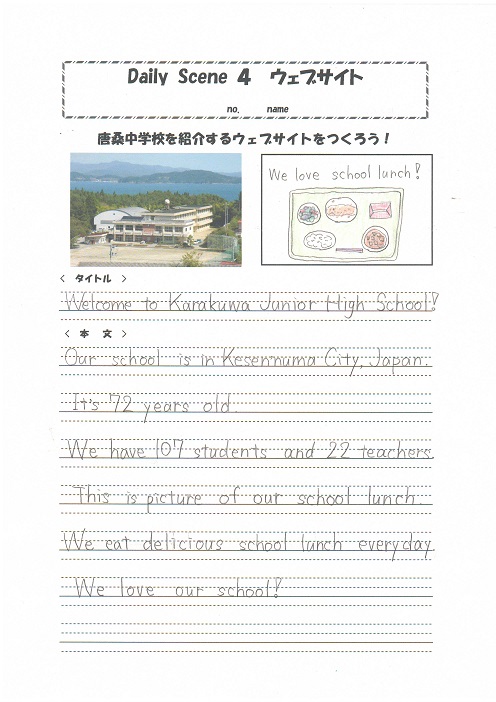 Daily Scene 4 ウェブサイト
no. name
唐桑中学校を紹介するウェブサイトをつくろう!
We love school lunch!
< タイトル >
Welcome to Karakuwa Junior High School!
< 本 文 >
Our school is in Kesen'numa City, Japan.
It's 72 years old.
We have 107 students and 22 teachers.
This is picture of our school lunch.
We eat delicious school lunch everyday.
We love our school!